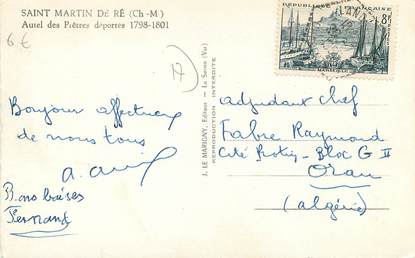 SAINT MARTIN DE RÉ (Ch.-M.)
Autel des Prêtres déportés 1798-1801
6 €
Bonjour affectueux
de nous tous
Bons baisers
Fernand
J. LE MARIGNY, Editeur - La Seyne (Var)
REPRODUCTION INTERDITE
REPUBLIQUE FRANÇAISE
8F
MARSEILLE
adjudant chef
Fabre Raymond
Bloc G II
Oran
(algérie)